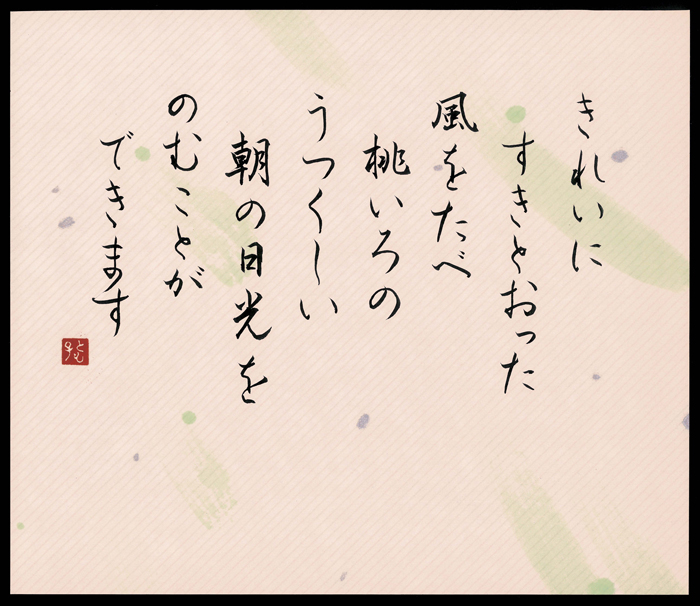 きれいに
すきとおった
風をたべ
桃いろの
うつくしい
朝の日光を
のむことが
できます